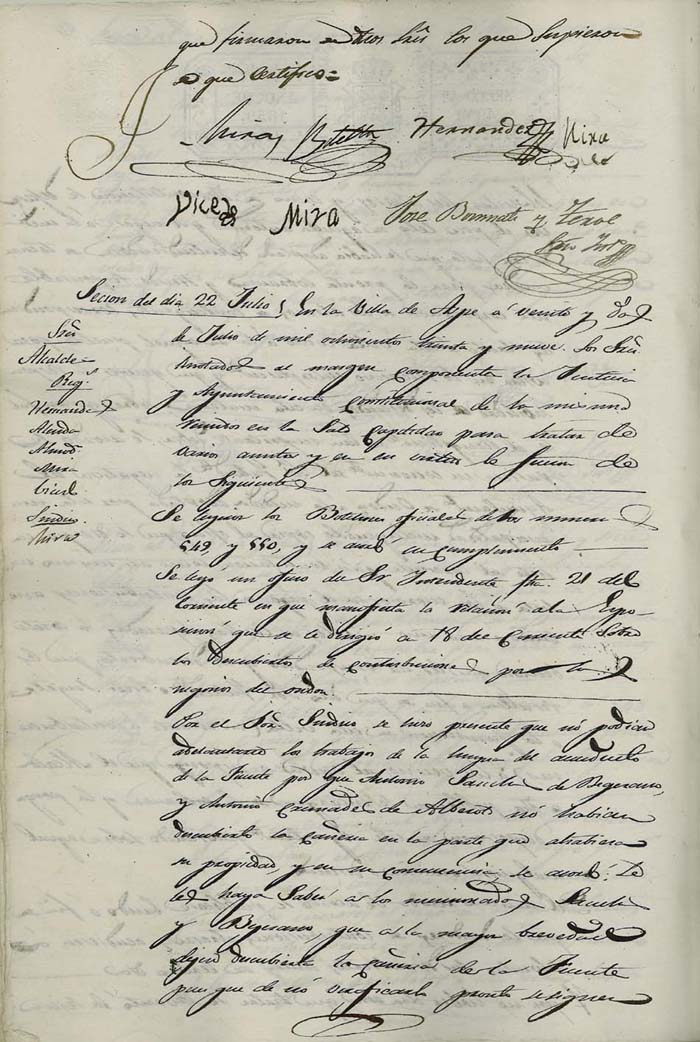 que firmaron dhos Sres los que supieron
de que certifico=
Mira Botella Hernandez Mira
Vicedo Mira Jose Bonmati y Terol
Srio Intº
Secion del dia 22 Julio } En la Villa de Aspe a veinte y dos
de Julio de mil ochocientos treinta y nueve. Los Sres
Sres
Alcalde
Regs
Hernandez
Almodr
Mira
Sindico
Mira
notados al margen componentes la Justicia
y Ayuntamiento Constitucional de la misma
reunidos en la Sala Capitular para tratar de
varios asuntos y en su virtud lo fueron de
los siguientes
Se leyeron los Boletines oficiales de los numeros
549 y 550, y se acordó su cumplimiento.
Se leyó un oficio del Sr Intendente fha. 21 del
Corriente en que manifiesta la relacion a la Expo-
sicion que se le dirigio a 18 del Corriente sobre
los descubiertos de contribuciones por los
negocios del
Por el Señor Sindico se hizo presente que no podian
adelantarse los trabajos de la limpia del acueducto
de la Fuente por que Antonio Sanchez de Begerano,
y Antonio Cremades de Alberot no habian
descubierto la cañeria en la parte que atrabiesa
su propiedad, y en su consecuencia se acordó: Se
les haga saber a los mencionados Sanchez
y Begerano, que a la mayor brevedad
dejen descubierta la cañeria de la Fuente
pues que de no verificarlo pronto